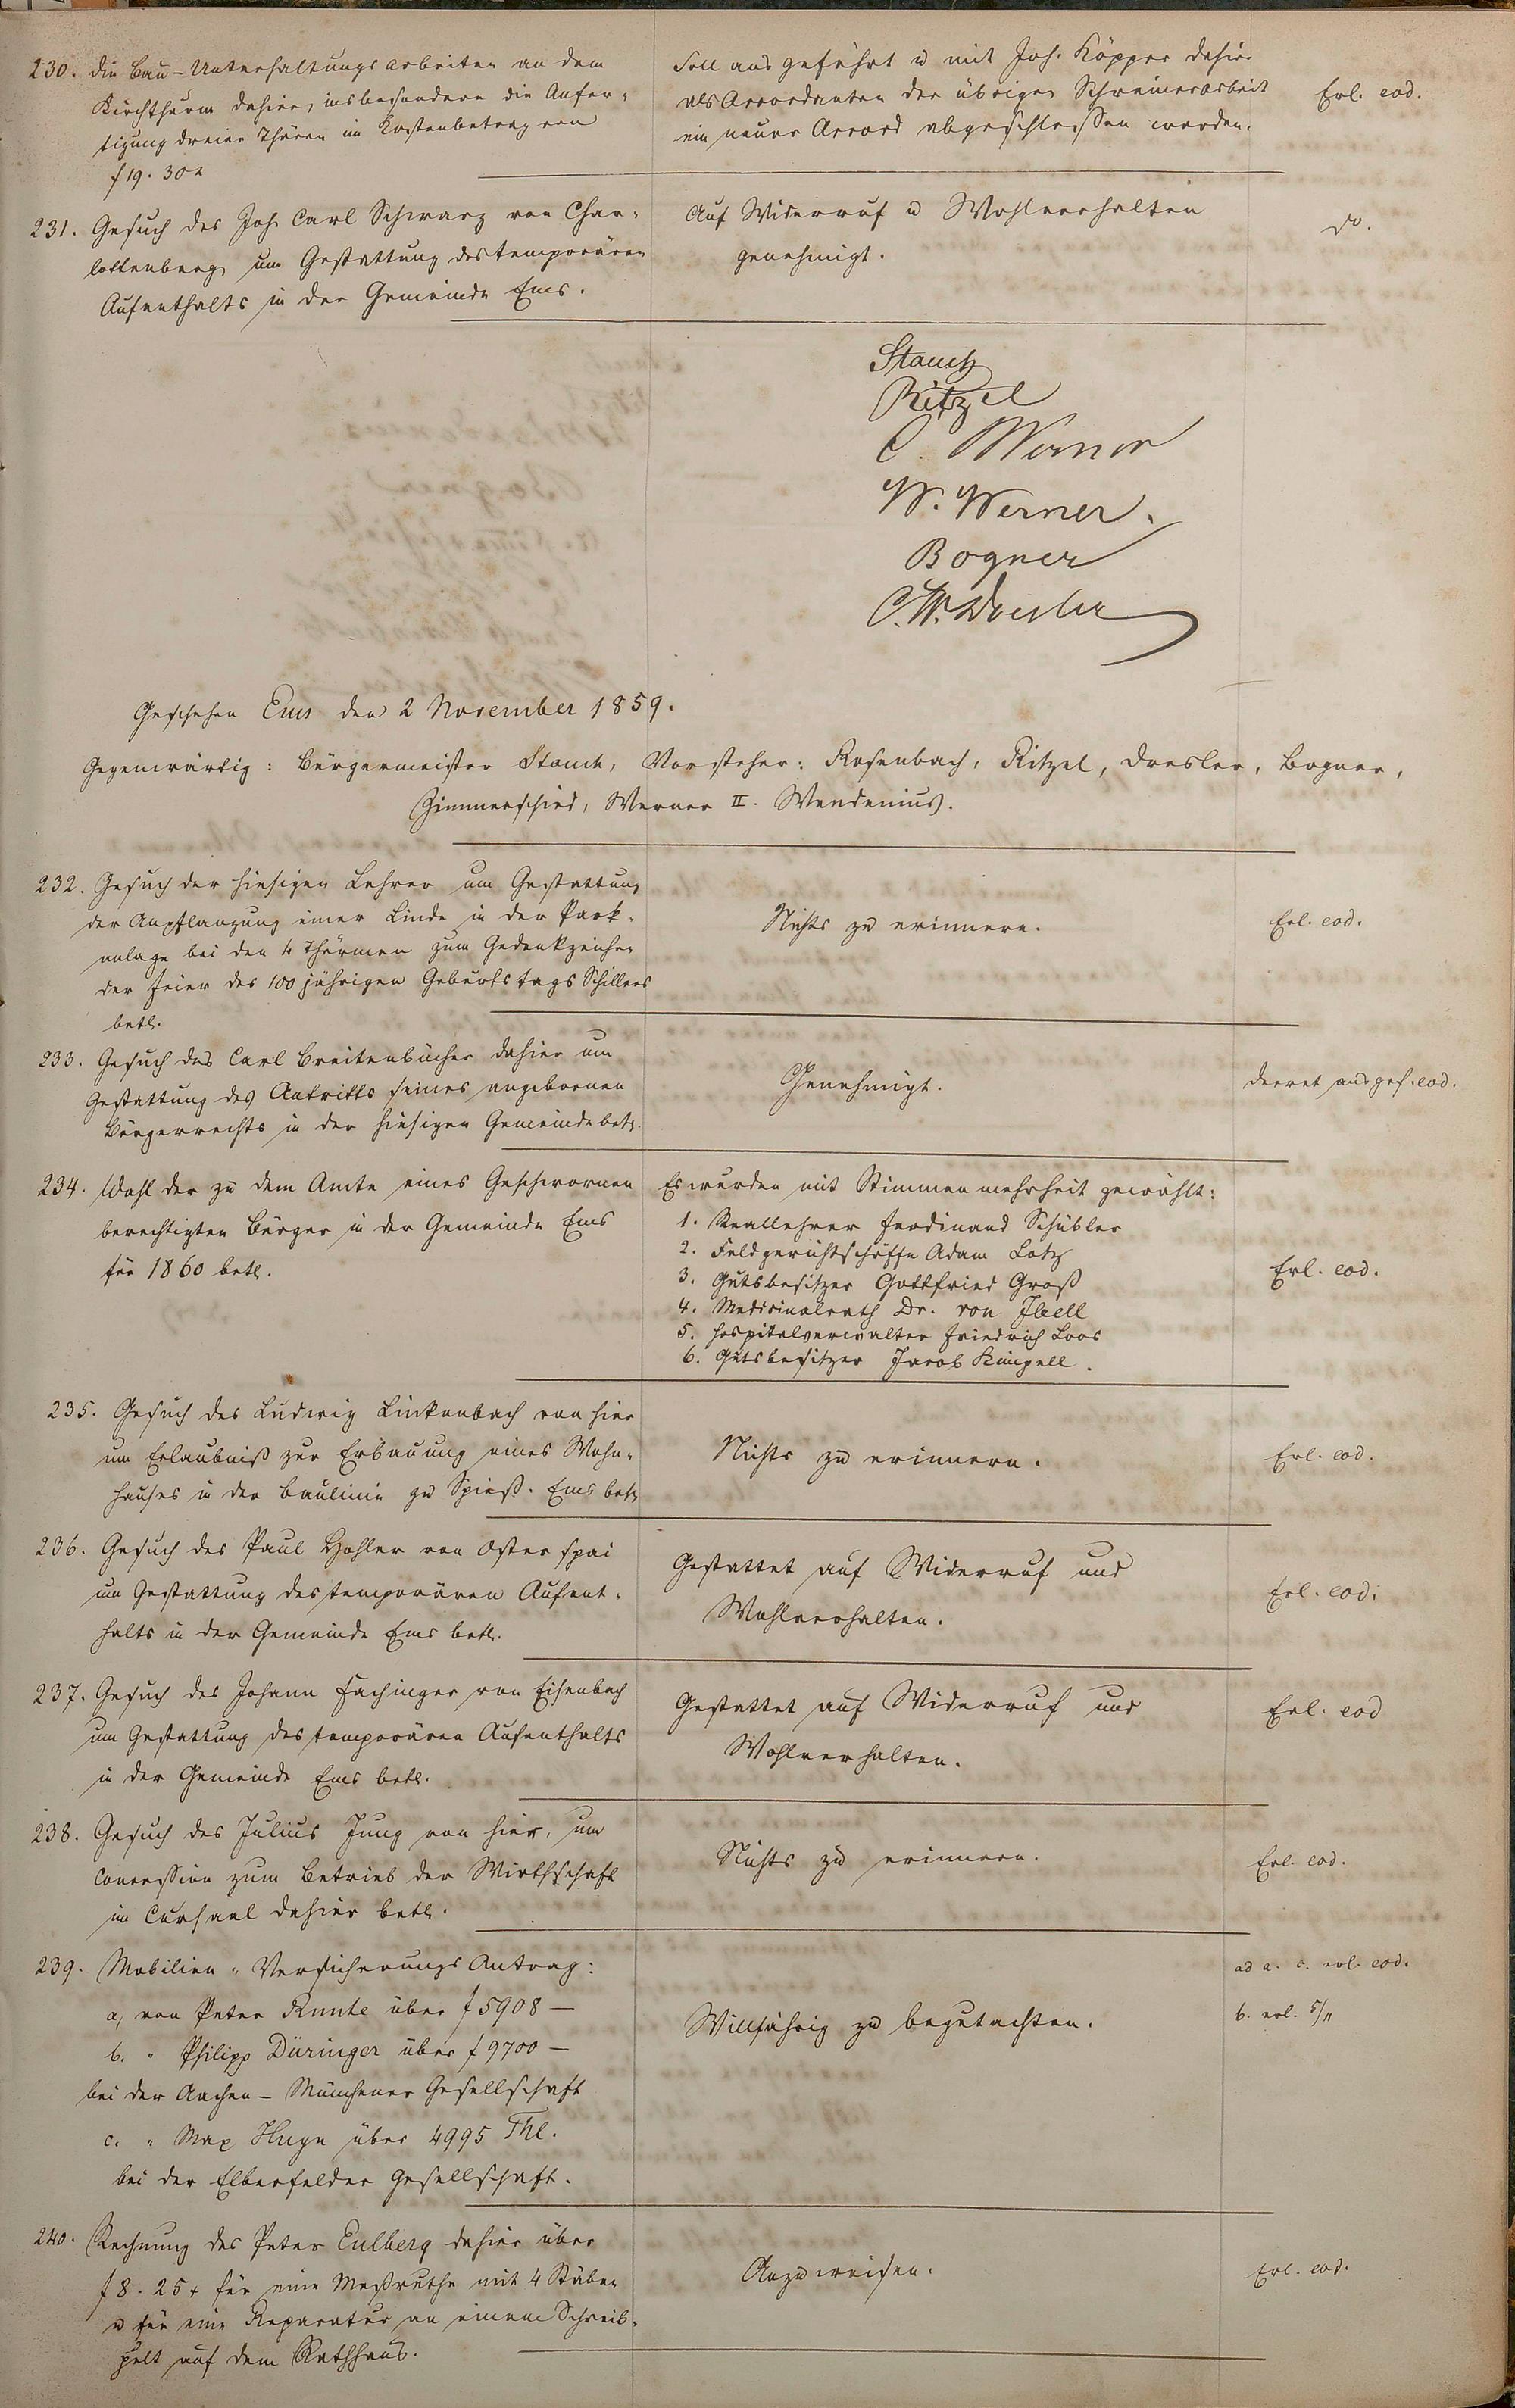 230. Die Bau-Unterhaltungsarbeiten an dem
Kirchthurm dahier, insbesondere die Anfer-
tigung dreier Thüren im Kostenbetrag von
f 19. 30 x
Soll ausgeführt u mit Joh. Köpper dahier
als Accordanten der übrigen Schreinerarbeit
ein neuer Accord abgeschlossen werden.
Erl. eod.
231. Gesuch des Joh. Carl Schwarz von Char-
lottenberg um Gestattung des temporären
Aufenthalts in der Gemeinde Ems.
Auf Widerruf u Wohlverhalten
genehmigt.
do.
Stauch
Ritzel
C. Werner
W. Werner.
Bogner
C. W. Dresler
Geschehen Ems den 2 November 1859.
Gegenwärtig: Bürgermeister Stauch, Vorsteher: Rosenbach, Ritzel, Dresler, Bogner,
Zimmerschied, Werner II. Wendenius.
232. Gesuch der hiesigen Lehrer um Gestattung
der Anpflanzung einer Linde in der Park-
anlage bei den 4 Thürmen zum Gedenkzeichen
der Feier des 100 jährigen Geburtstags Schillers
betr.
Nichts zu erinnern.
Erl. eod.
233. Gesuch des Carl Breitenbücher dahier um
Gestattung des Antritts seines angebornen
Bürgerrechts in der hiesigen Gemeinde betr.
Genehmigt.
Decret ausgef. eod.
234. Wahl der zu dem Amte eines Geschwornen
berechtigten Bürger in der Gemeinde Ems
für 1860 betr.
Es wurden mit Stimmenmehrheit gewählt:
1. Reallehrer Ferdinand Schübler
2. Feldgerichtschöffe Adam Lotz
3. Gutsbesitzer Gottfried Groß
4. Medicinalrath Dr. von Ibell
5. Hospitalverwalter Friedrich Loos
6. Gutsbesitzer Jacob Kimpell.
Erl. eod.
235. Gesuch des Ludwig Linkenbach von hier
um Erlaubniß zur Erbauung eines Wohn-
hauses in der Baulinie zu Spieß-Ems betr
Nichts zu erinnern.
Erl. eod.
236. Gesuch des Paul Hohler von Osterspai
um Gestattung des temporären Aufent-
halts in der Gemeinde Ems betr.
Gestattet auf Widerruf und
Wohlverhalten.
Erl. eod.
237. Gesuch des Johann Fachinger von Eisenbach
um Gestattung des temporären Aufenthalts
in der Gemeinde Ems betr.
Gestattet auf Widerruf und
Wohlverhalten.
Erl. eod
238. Gesuch des Julius Jung von hier, um
Concession zum Betrieb der Wirthschaft
im Cursaal dahier betr.
Nichts zu erinnern.
Erl. eod.
239. Mobilien-Versicherungs Antrag:
a, von Peter Runte über f 5908 —
b. " Philipp Düringer über f 9700 —
bei der Aachen-Münchener Gesellschaft
c. " Max Huyn über 4995 Thl.
bei der Elberfelder Gesellschaft.
Willfährig zu begutachten.
ad a. c. erl. eod.
b. erl. 5/11
240. Rechnung des Peter Eulberg dahier über
f 8. 25 x für eine Meßruthe mit 4 Stäben
u für eine Reparatur an einem Schreib-
pult auf dem Rathhaus.
Anzuweisen.
Erl. eod.